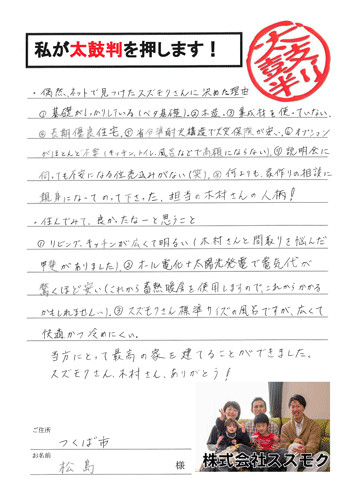 私が太鼓判を押します！
太鼓判
・偶然、ネットで見つけたスズモクさんに決めた理由
①基礎がしっかりしている(ベタ基礎)、②木造、③集成材を使っていない、
④長期優良住宅、⑤省令準耐火構造で火災保険が安い、⑥オプション
がほとんど不要(キッチン、トイレ、風呂などで高額にならない)、⑦説明会に
伺っても不安になる位売込みがない(笑)、⑧何よりも、家作りの相談に
親身になってのって下さった、担当の木村さんの人柄！
・住んでみて、良かったなーと思うこと
①リビング、キッチンが広くて明るい(木村さんと間取りを悩んだ
甲斐がありました)、②オール電化+太陽光発電で電気代が
驚くほど安い(これから蓄熱暖房を使用しますので、これからかかる
かもしれませんが…)、③スズモクさん標準サイズの風呂ですが、広くて
快適かつ冷めにくい。
当方にとって最高の家を建てることができました。
スズモクさん、木村さん、ありがとう！
ご住所
つくば市
お名前
松島 様
株式会社スズモク